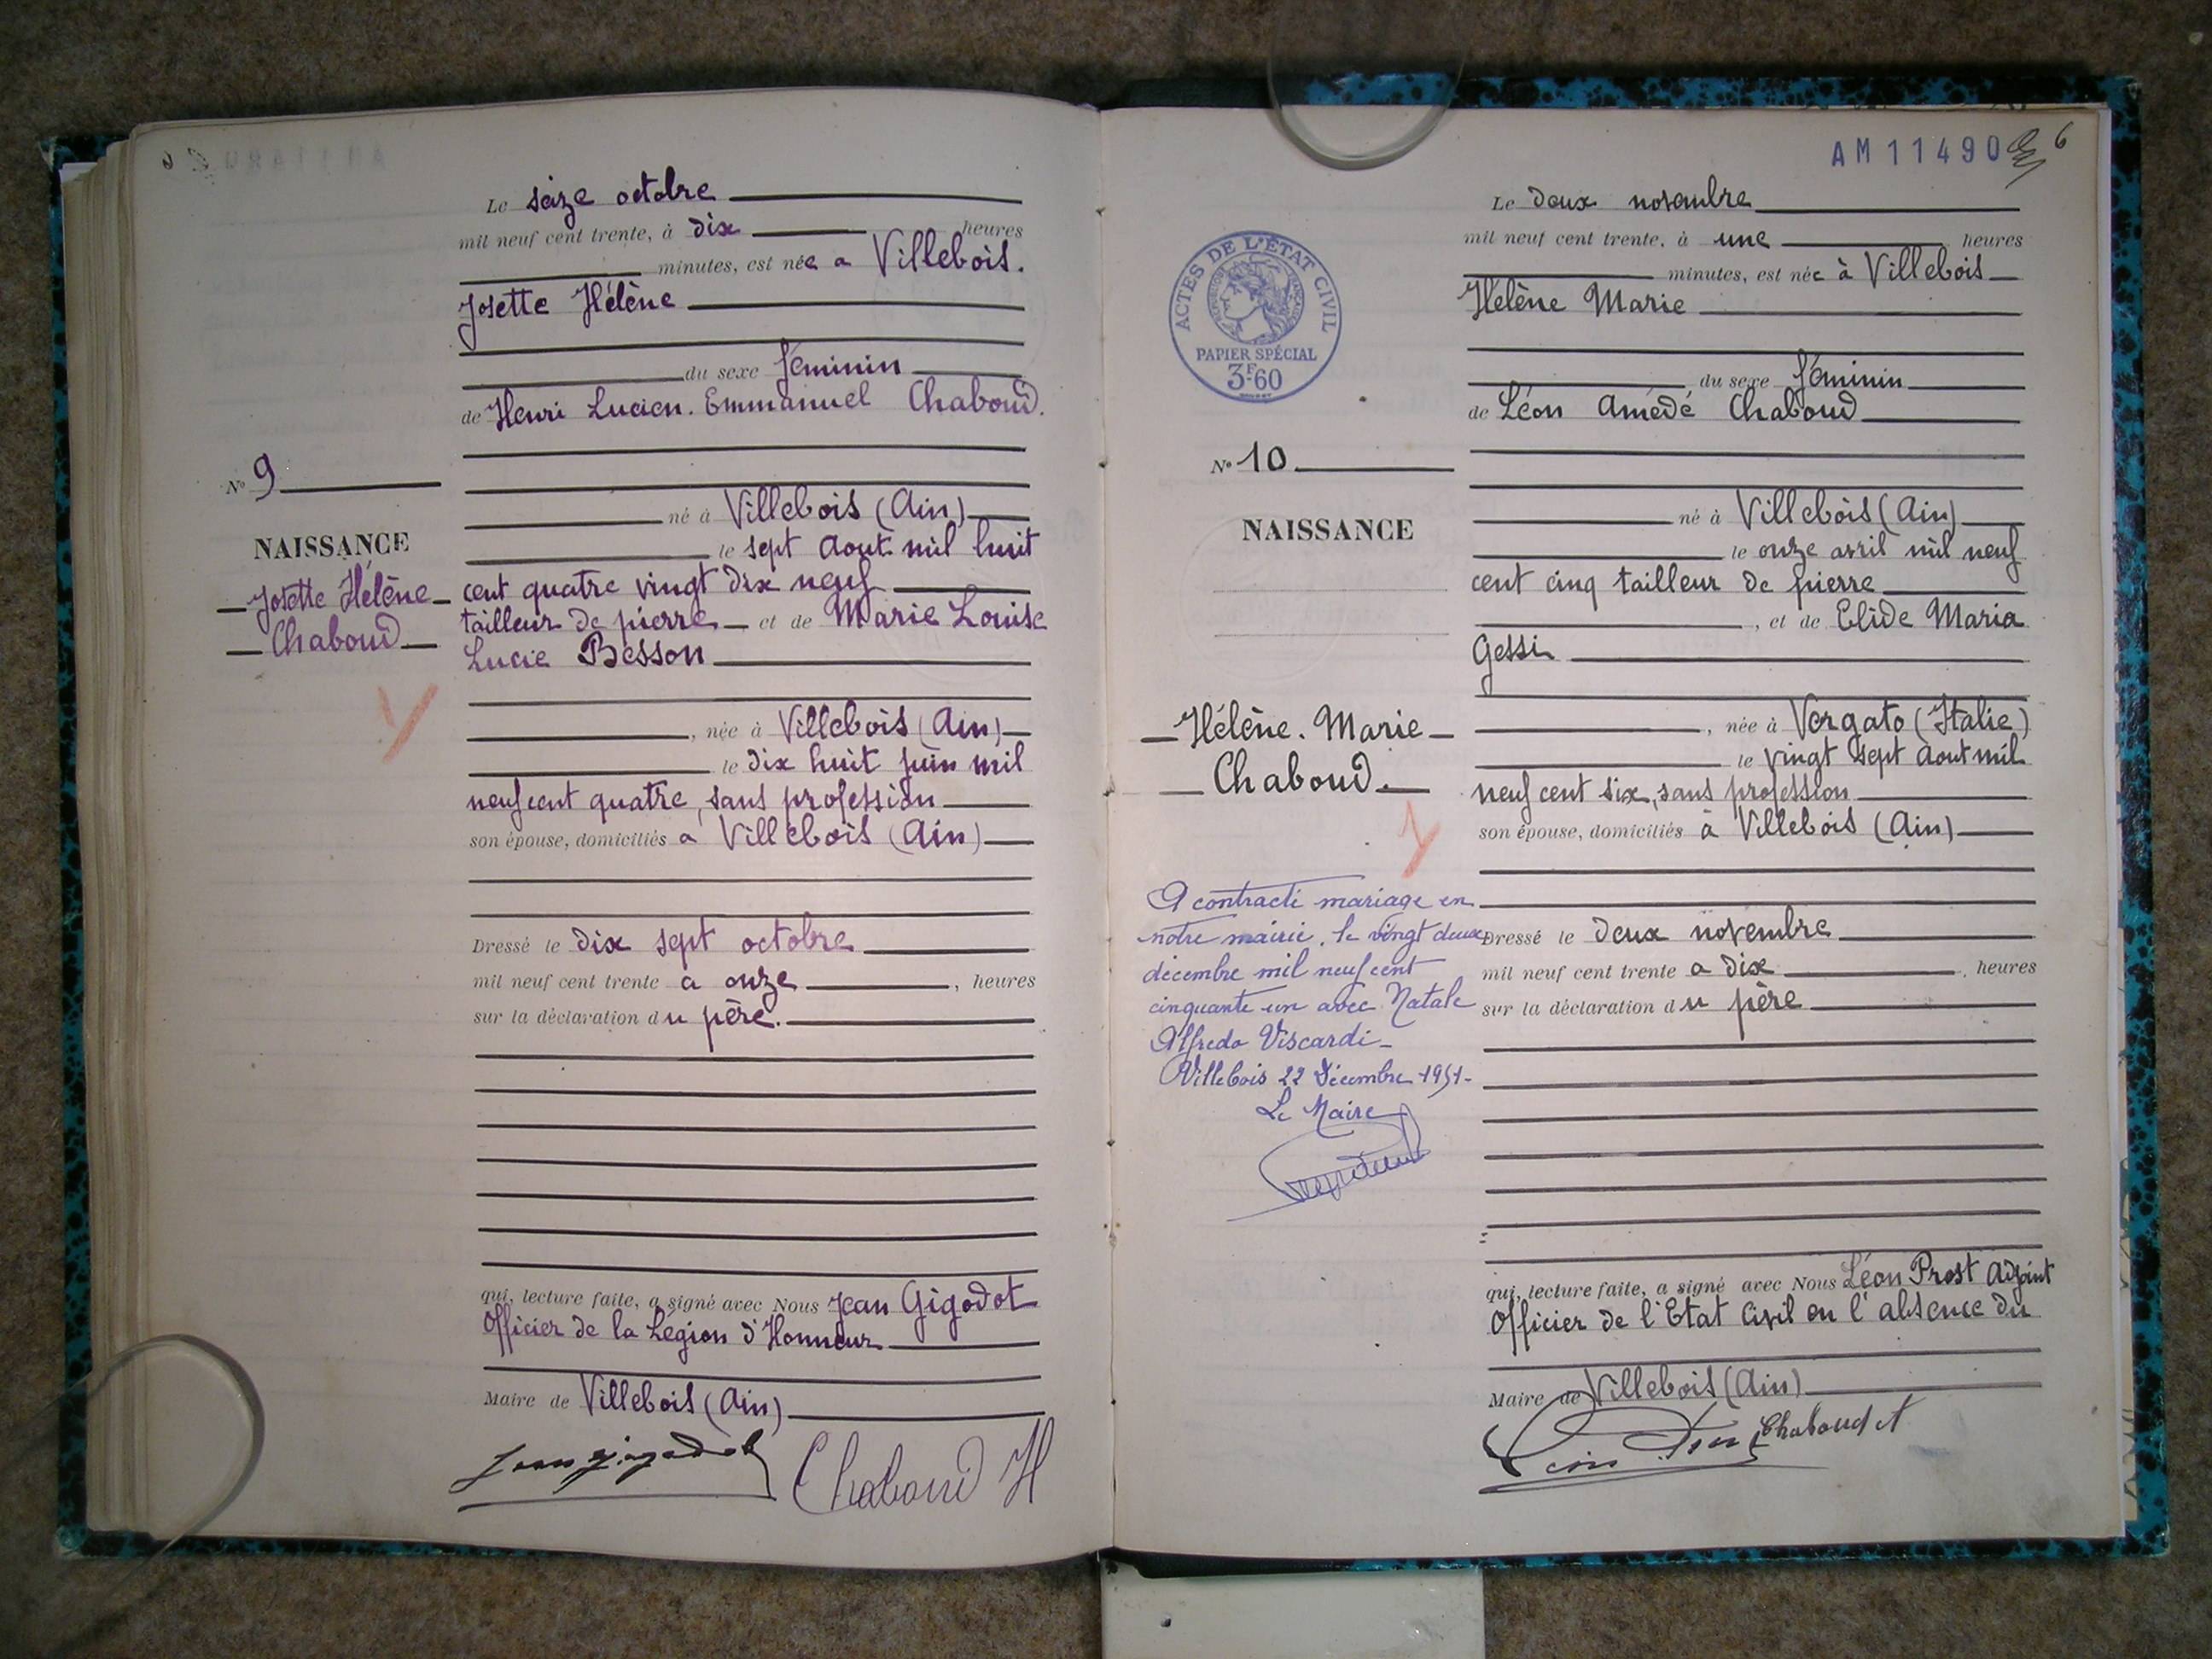 Le seize octobre
mil neuf cent trente, à dix heures
minutes, est née a Villebois.
Josette Hélène
du sexe féminin
de Henri Lucien. Emmanuel Chaboud.
N° 9
NAISSANCE
Josette Hélène
Chaboud
né à Villebois (Ain)
le sept Aout mil huit
cent quatre vingt dix neuf
tailleur de pierre et de Marie Louise
Lucie Besson
, née à Villebois (Ain)
le dix huit juin mil
neuf cent quatre, sans profession
son épouse, domiciliés a Villebois (Ain)
Dressé le dix sept octobre
mil neuf cent trente a onze , heures
sur la déclaration du père.
qui, lecture faite, a signé avec Nous Jean Gigodot
Officier de la Légion d'Honneur
Maire de Villebois (Ain)
Jean Gigodot
Chaboud H
AM11490
6
Le deux novembre
mil neuf cent trente, à une heures
minutes, est née à Villebois
Hélène Marie
du sexe féminin
de Léon Amédé Chaboud
ACTES DE L'ÉTAT CIVIL
RÉPUBLIQUE FRANÇAISE
PAPIER SPÉCIAL
3F60
N° 10
NAISSANCE
Hélène. Marie
Chaboud.
né à Villebois (Ain)
le onze avril mil neuf
cent cinq tailleur de pierre
, et de Elide Maria
Gessi
, née à Vergato (Italie)
le vingt sept Aout mil
neuf cent six, sans profession
son épouse, domiciliés à Villebois (Ain)
A contracté mariage en
notre mairie, le vingt deux
décembre mil neuf cent
cinquante un avec Natale
Alfredo Viscardi-
Villebois 22 Décembre 1951-
Le Maire
Dressé le deux novembre
mil neuf cent trente a dix , heures
sur la déclaration du père
qui, lecture faite, a signé avec Nous Léon Prost Adjoint
Officier de l'Etat Civil en l'absence du
Maire de Villebois (Ain)
Léon Prost
Chaboud A